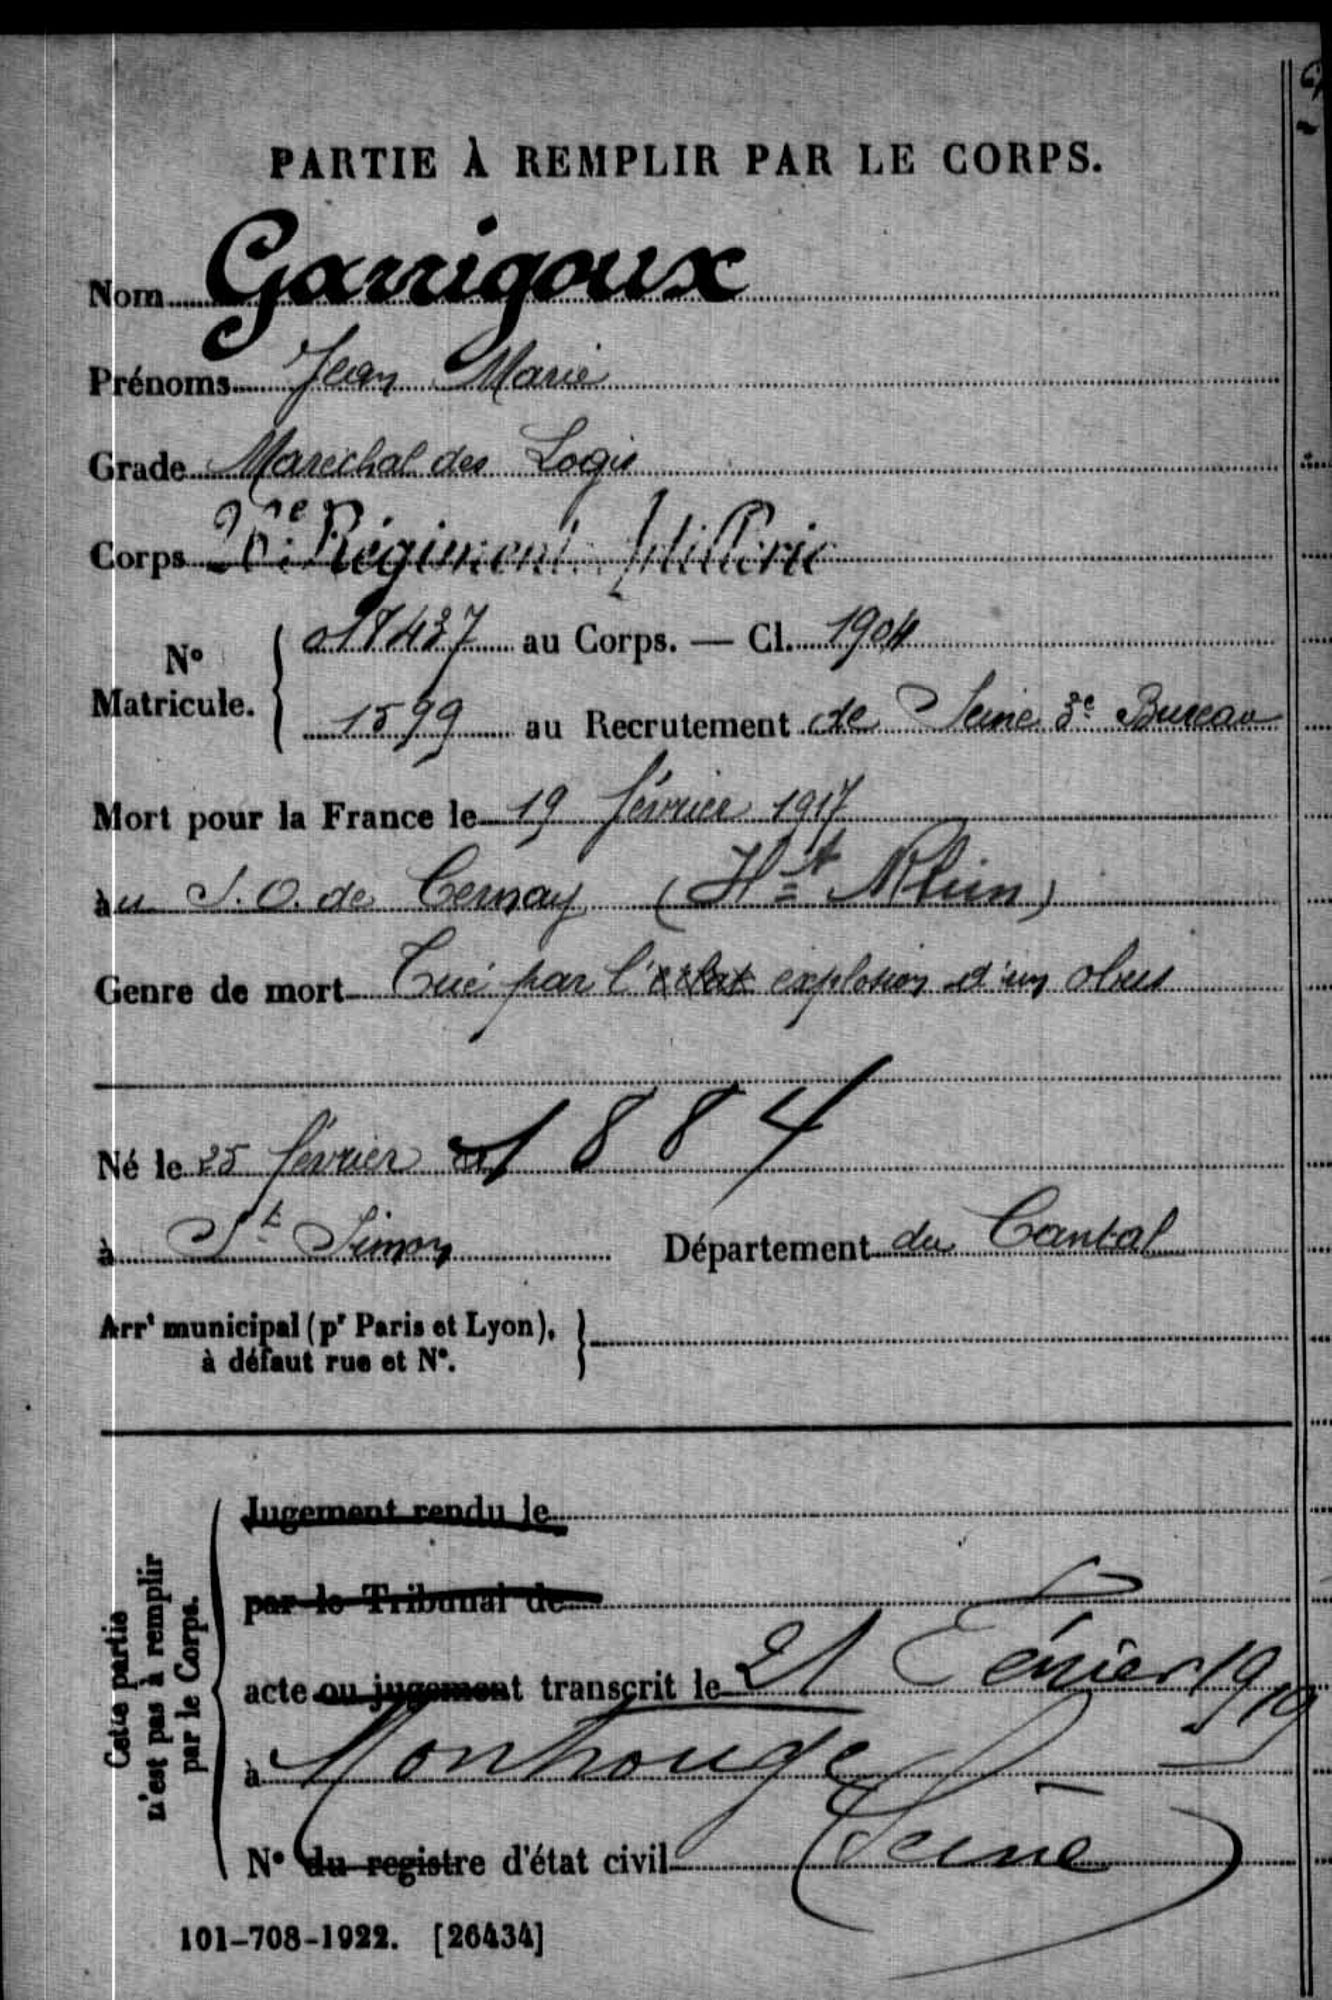 PARTIE À REMPLIR PAR LE CORPS.
Nom Garrigoux
Prénoms Jean Marie
Grade Maréchal des Logis
Corps Régiment Artillerie
N° Matricule. 18437 au Corps. — Cl. 1904
1599 au Recrutement de Seine 3e Bureau
Mort pour la France le 19 février 1917
àu S.O. de Cernay (Ht Rhin)
Genre de mort Tué par l'éclat explosion d'un obus
Né le 25 février 1884
à St Simon Département du Cantal
Arrt municipal (pr Paris et Lyon),
à défaut rue et N°.
Cette partie
n'est pas à remplir
par le Corps.
Jugement rendu le
par le Tribunal de
acte ou jugement transcrit le 21 Février 1919
à Montrouge
(Seine)
N° du registre d'état civil
101-708-1922. [26434]